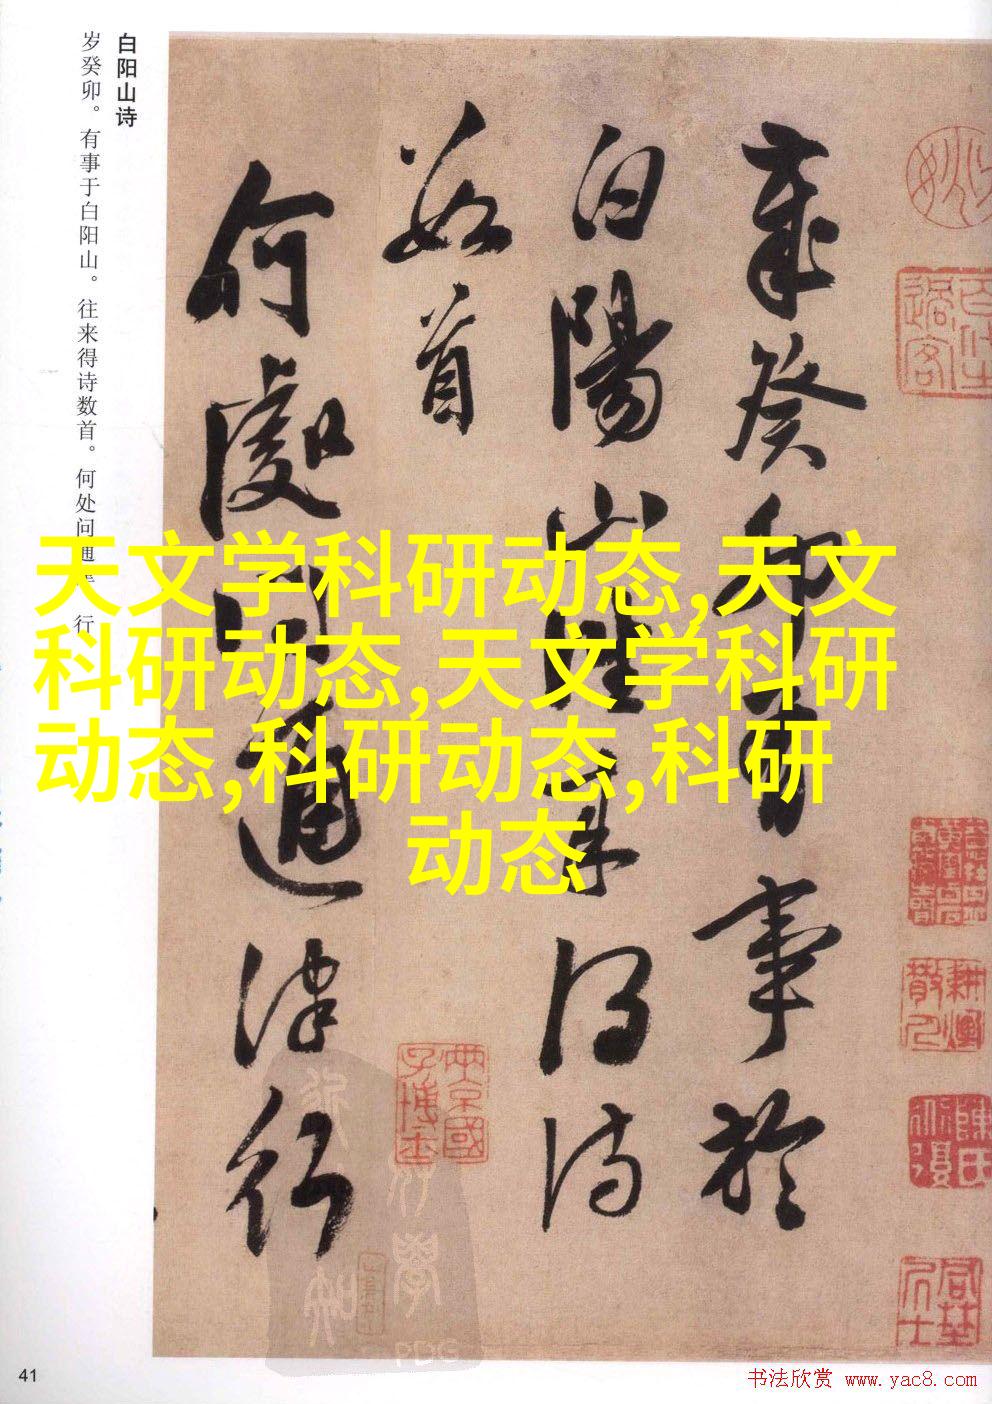 白阳山诗
岁癸卯。有事于白阳山。往来得诗数首。何处问通津。行
歲癸卯有事於
白陽山往来得诗
数首
何處問通津行
天文学科研动态,天文
科研动态,天文学科研
动态,科研动态,科研
动态
41
书法欣赏 www.yac8.com